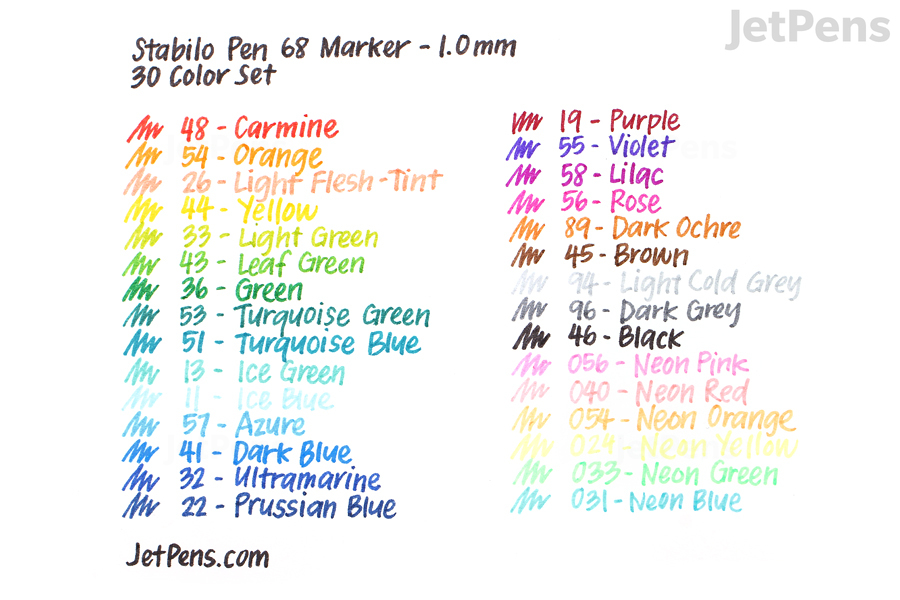 JetPens
Stabilo Pen 68 Marker - 1.0mm
30 Color Set
48 - Carmine
54 - Orange
26 - Light Flesh-Tint
44 - Yellow
33 - Light Green
43 - Leaf Green
36 - Green
53 - Turquoise Green
51 - Turquoise Blue
13 - Ice Green
11 - Ice Blue
57 - Azure
41 - Dark Blue
32 - Ultramarine
22 - Prussian Blue
19 - Purple
55 - Violet
58 - Lilac
56 - Rose
89 - Dark Ochre
45 - Brown
94 - Light Cold Grey
96 - Dark Grey
46 - Black
056 - Neon Pink
040 - Neon Red
054 - Neon Orange
024 - Neon Yellow
033 - Neon Green
031 - Neon Blue
JetPens.com